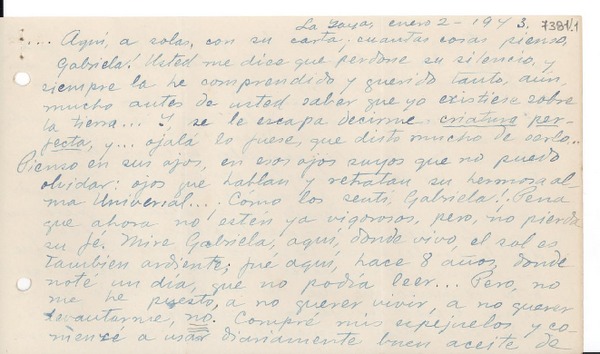 La Loya, enero 2 - 1943.
7381/1
.... Aquí, a solas, con su carta, cuantas cosas pienso,
Gabriela! Usted me dice que perdone su silencio, y
siempre la he comprendido y querido tanto, aún
mucho antes de usted saber que yo existiese sobre
la tierra... Y, se le escapa decirme criatura per-
fecta, y... ojalá lo fuese, que disto mucho de serlo...
Pienso en sus ojos, en esos ojos suyos que no puedo
olvidar: ojos que hablan y retratan su hermosa al-
ma Universal... ¡Cómo los sentí, Gabriela! Pena
que ahora no estén ya vigorosos, pero, no pierda
su fé. Mire Gabriela, aquí, donde vivo, el sol es
tambien ardiente; fué aquí, hace 8 años, donde
noté un día, que no podía leer... Pero, no
me he puesto, a no querer vivir, a no querer
levantarme, no. Compré mis espejuelos y co-
menzé a usar diariamente buen aceite de